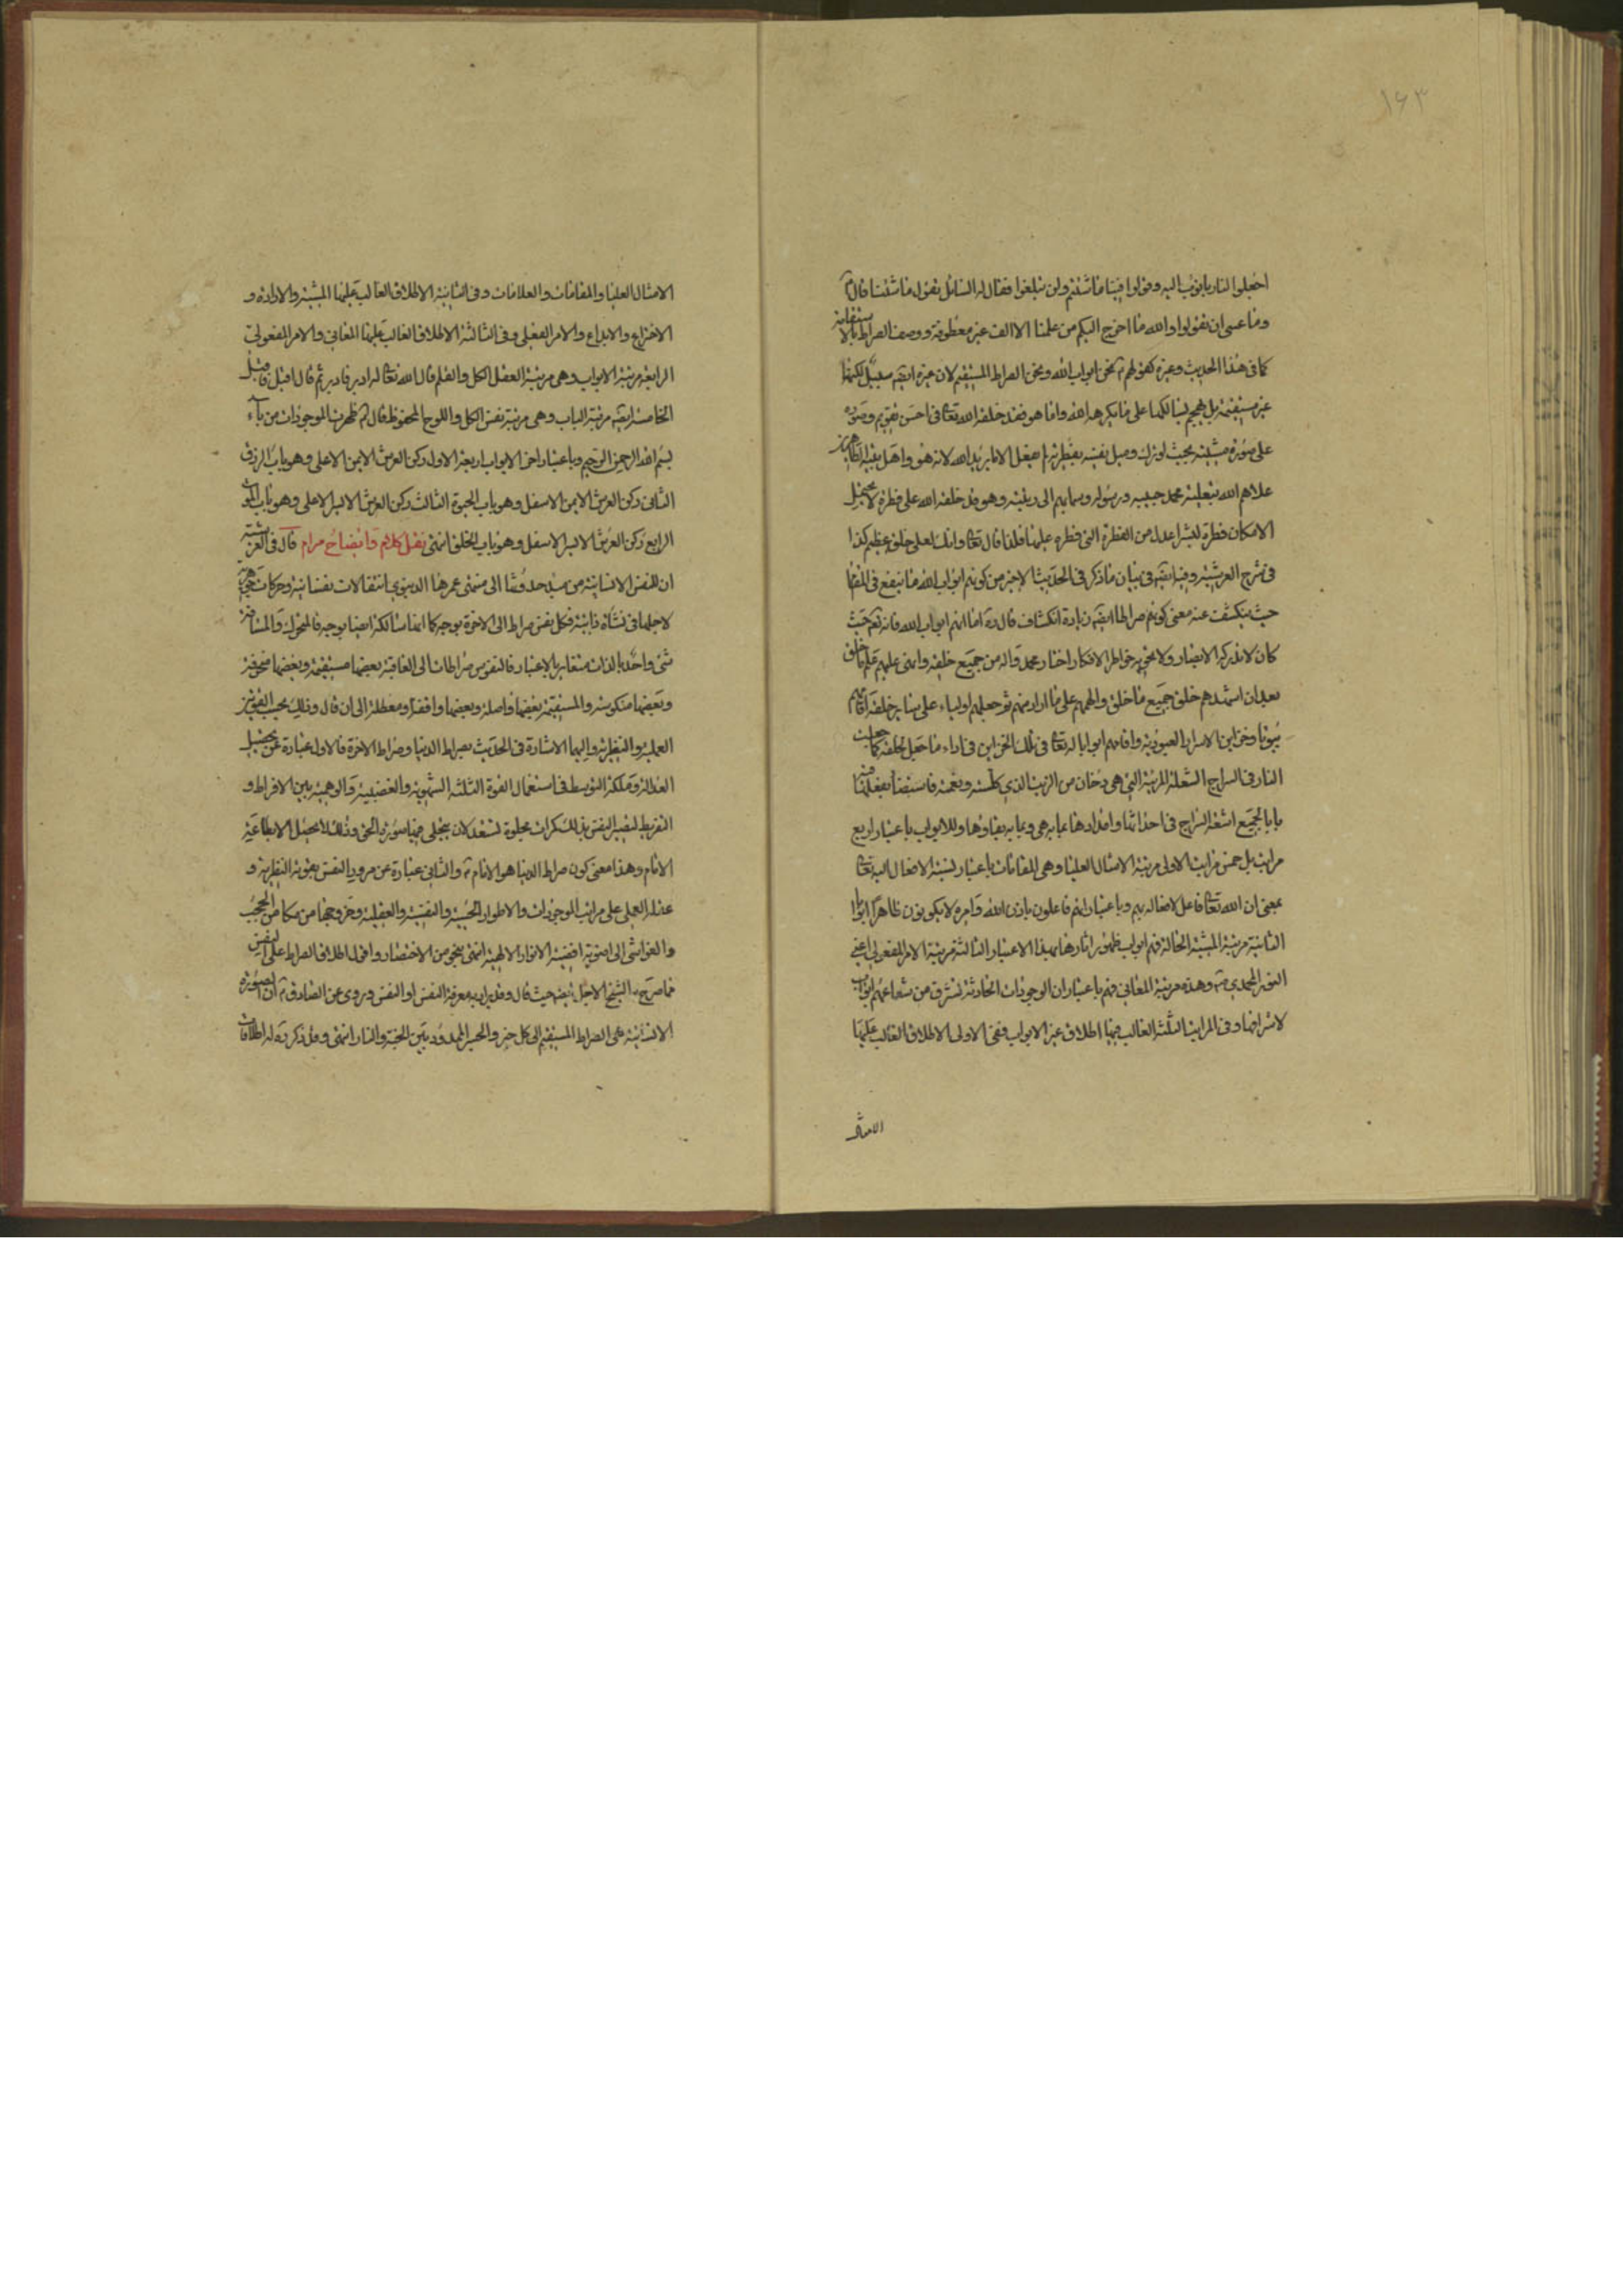 ١٦٣
اجعلوا لنا ربا نؤب اليه وقولوا فينا ما شئتم ولن تبلغوا فقال له السائل نقول ما شئنا قال ع
وما عسى ان تقولوا والله ما خرج اليكم من علمنا الا الف غير معطوفة ووصف الصراط بالاستقامة
كما في هذا الحديث وغيره كقولهم ع نحن ابواب الله ونحن الصراط المستقيم لان غيره ايضا سبيل لكنها
غير مستقيمة بل هجم بسالكها على ما يكرهه الله واما هو فقد خلقه الله تعالى في احسن تقويم وصوره
على صورة مشيته بحيث لو ترك وميل نفسه بفطرته لم يفعل الا ما يريد الله لانه هو واهل بيته الطاهرين
علاهم الله بتعليته محمد حبيبه ورسوله وسما بهم الى رتبته وهو قد خلقه الله على فطرة لا يحتمل
الامكان فطرة لبشر اعدل من الفطرة التي فطره عليها فلذا قال تعالى وانك لعلى خلق عظيم كذا
في شرح العرشية وفيه ايضا في بيان ما ذكر في الحديث الاخير من كونهم ابواب الله ما ينفع في المقام
حيث ينكشف عنه معنى كونهم صراطا ايضا زيادة انكشاف قال ره اما انهم ابواب الله فانه تعالى حيث
كان لا تدركه الابصار ولا تحويه خواطر الافكار اختار محمدا واله من جميع خلقه وانهى عليهم علم ما خلق
بعد ان اشهدهم خلق جميع ما خلق والهمهم على ما اراد منهم ثم جعلهم اولياء على سائر خلقه اقامهم
بيوتا وخزاين الاسرار العبودية واقامهم ابوابا له تعالى في تلك الخزاين في اداء ما جعل لخلقه كما جعلت
النار في السراج الشعلة المرئية التي هي دخان من الزيت الذي كلسته ونعمته فاستضاء بفعلها فيه
بابا لجميع اشعة السراج في احداثها وامدادها عما به هي وعما به بقاؤها وللابواب باعتبار اربع
مراتب بل خمس مراتب الاولى مرتبة الامثال العليا وهي المقامات باعتبار نسبة الافعال اليه تعالى
بمعنى ان الله تعالى فاعل لافعاله بهم وباعتبار انهم فاعلون باذن الله وامره لا يكونون ظاهرا ابوابا
الثانية مرتبة المشية الحالة فهم ابواب ظهور اثارها بهذا الاعتبار الثالثة مرتبة الامر المفعولي اعني
النور المحمدي ص وهذه مرتبة المعاني فهم باعتبار ان الوجودات الحادثة تشرق من شعاعهم ابواب
لاشراقها وفي المراتب الثلثة الغالب فيها اطلاق غير الابواب ففي الاولى الاطلاق الغالب عليها
الامثال
الامثال العليا والمقامات والعلامات وفي الثانية الاطلاق الغالب عليها المشية والارادة و
الاختراع والابداع والامر الفعلي وفي الثالثة الاطلاق الغالب عليها المعاني والامر المفعولي
الرابعة مرتبة الابواب وهي مرتبة العقل الكل والقلم قال الله تعالى له ادبر فادبر ثم قال اقبل فاقبل
الخامسة ايضا مرتبة الباب وهي مرتبة نفس الكل واللوح المحفوظ قال ع ظهرت الموجودات من باء
بسم الله الرحمن الرحيم وباعتبار اخر الابواب اربعة الاول ركن العرش الايمن الاعلى وهو باب الرزق
الثاني ركن العرش الايمن الاسفل وهو باب الحيوة الثالث ركن العرش الايسر الاعلى وهو باب الموت
الرابع ركن العرش الايسر الاسفل وهو باب الخلق انتهى نقل كلام وايضاح مرام قال في العرشية
ان للنفس الانسانية من مبدء حدوثها الى منتهى عمرها الدنيوي انتقالات نفسانية وحركات جوهرية
لاجلها في نشأة ذاتية فكل نفس صراط الى الاخرة بوجه كما انها سالكة ايضا بوجه فالمتحرك والمسافة
شئ واحد بالذات متغاير بالاعتبار فالنفوس صراطات الى العاقبة بعضها مستقيمة وبعضها منحرفة
وبعضها منكوسة والمستقيمة بعضها واصلة وبعضها واقفة او معطلة الى ان قال وذلك بحسب القوتين
العملية والنظرية واليهما الاشارة في الحديث بصراط الدنيا وصراط الاخرة فالاول عبارة عن تحصيل
العدالة وملكة التوسط في استعمال القوة الثلثة الشهوية والغضبية والوهمية بين الافراط و
التفريط لتصير النفس بذلك كمرات مجلوة تستعد لان يتجلى فيها صورة الحق وذلك لا يحصل الا بطاعة
الامام وهذا معنى كون صراط الدنيا هو الامام ع والثاني عبارة عن مرور النفس بقوته النظرية و
عقله العملي على مراتب الموجودات والاطوار الحسية والنفسية والعقلية وخروجها من مكامن الحجب
والغواشي الى اضوية افضية الانوار الالهية انتهى بنحو من الاختصار واقول اطلاق الصراط على النفس
مما صرح به الشيخ الاجل ايضا حيث قال وقد يراد به معرفة النفس او النفس وروى عن الصادق ع ان الصورة
الانسانية هي الصراط المستقيم الى كل خير والجسر الممدود بين الجنة والنار انتهى وقد ذكر ره له اطلاقات